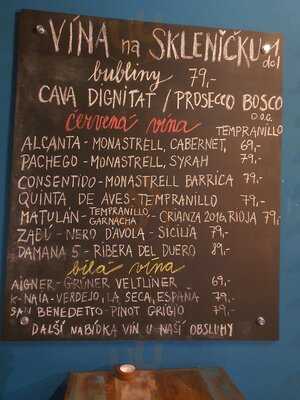 VÍNA na SKLENIČKU 1
dcl
bubliny 79,-
CAVA DIGNITAT / PROSECCO BOSCO
D.O.C.
červená vína TEMPRANILLO
ALCANTA - MONASTRELL, CABERNET, 69,-
PACHEGO - MONASTRELL, SYRAH 79,-
CONSENTIDO - MONASTRELL BARRICA 79,-
QUINTA DE AVES - TEMPRANILLO 79,-
MATULÁN - TEMPRANILLO, GARNACHA - CRIANZA 2016, RIOJA 79,-
ZABÚ - NERO D'AVOLA - SICILIA 79,-
DAMANA 5 - RIBERA DEL DUERO 89,-
bílá vína
AIGNER - GRÜNER VELTLINER 69,-
K-NAIA - VERDEJO, LA SECA, ESPAÑA 79,-
SAN BENEDETTO - PINOT GRIGIO 79,-
DALŠÍ NABÍDKA VÍN U NAŠÍ OBSLUHY